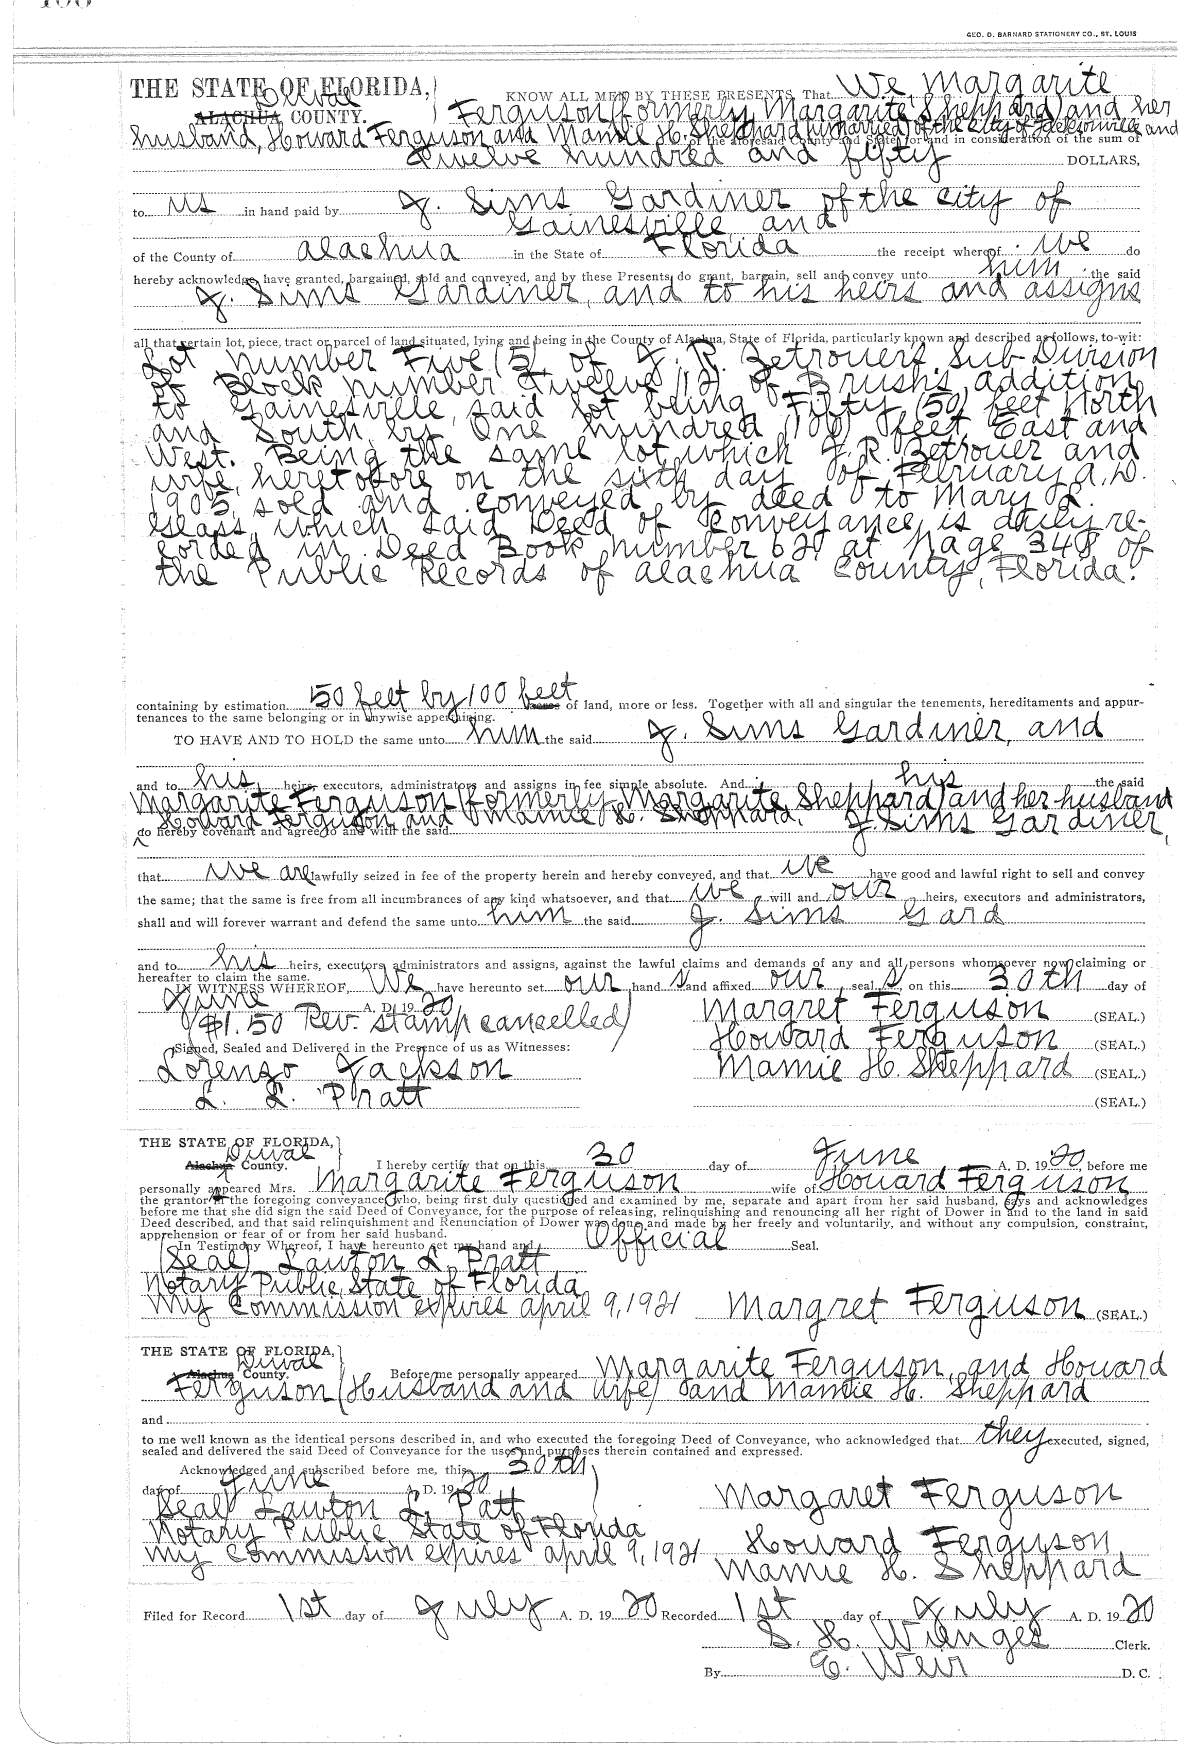 GEO. D. BARNARD STATIONERY CO., ST. LOUIS
THE STATE OF FLORIDA,
Duval
ALACHUA COUNTY.
KNOW ALL MEN BY THESE PRESENTS, That We Margarite
Ferguson (formerly Margarite Sheppard) and her
husband, Howard Ferguson and Mamie H. Sheppard (unmarried) of the city of Jacksonville and
of the aforesaid County and State for and in consideration of the sum of
Twelve hundred and fifty DOLLARS,
to us in hand paid by J. Sims Gardiner of the city of
Gainesville, and
of the County of Alachua in the State of Florida the receipt whereof we do
hereby acknowledge, have granted, bargained, sold and conveyed, and by these Presents do grant, bargain, sell and convey unto him the said
J. Sims Gardiner, and to his heirs and assigns
all that certain lot, piece, tract or parcel of land situated, lying and being in the County of Alachua, State of Florida, particularly known and described as follows, to-wit:
Lot Number Five (5) of J. R. Zetrouer's Sub-Division
of Block number Twelve (12) of Brush's addition
to Gainesville, said lot being Fifty (50) feet North
and South, by One hundred (100) feet East and
West. Being the same lot which J. R. Zetrouer and
wife, heretofore on the sixth day of February A.D.
1905, sold and conveyed by deed to Mary L.
Glass, which said Deed of Conveyance is duly re-
corded in Deed Book number 62 at page 348 of
the Public Records of Alachua County, Florida.
containing by estimation 50 feet by 100 feet acres of land, more or less. Together with all and singular the tenements, hereditaments and appur-
tenances to the same belonging or in anywise appertaining.
TO HAVE AND TO HOLD the same unto him the said J. Sims Gardiner, and
and to his heirs, executors, administrators and assigns in fee simple absolute. And his the said
Margarite Ferguson (formerly Margarite Sheppard) and her husband
Howard Ferguson and Mamie H. Sheppard.
do hereby covenant and agree to and with the said J. Sims Gardiner,
that we are lawfully seized in fee of the property herein and hereby conveyed, and that we have good and lawful right to sell and convey
the same; that the same is free from all incumbrances of any kind whatsoever, and that we will and our heirs, executors and administrators,
shall and will forever warrant and defend the same unto him the said J. Sims Gard
and to his heirs, executors, administrators and assigns, against the lawful claims and demands of any and all persons whomsoever now claiming or
hereafter to claim the same.
IN WITNESS WHEREOF, We have hereunto set our hand s and affixed our seal s on this 30th day of
June A. D. 1920
($1.50 Rev. stamp cancelled)
Margret Ferguson (SEAL.)
Howard Ferguson (SEAL.)
Signed, Sealed and Delivered in the Presence of us as Witnesses:
Lorenzo Jackson
Mamie H. Sheppard (SEAL.)
L. L. Pratt
(SEAL.)
THE STATE OF FLORIDA,
Duval
Alachua County.
I hereby certify that on this 30 day of June A. D. 1920, before me
personally appeared Mrs. Margarite Ferguson wife of Howard Ferguson
the grantor of the foregoing conveyance, who, being first duly questioned and examined by me, separate and apart from her said husband, says and acknowledges
before me that she did sign the said Deed of Conveyance, for the purpose of releasing, relinquishing and renouncing all her right of Dower in and to the land in said
Deed described, and that said relinquishment and Renunciation of Dower was done and made by her freely and voluntarily, and without any compulsion, constraint,
apprehension or fear of or from her said husband.
In Testimony Whereof, I have hereunto set my hand and Official Seal.
(Seal) Lawton L. Pratt
Notary Public, State of Florida
My Commission expires April 9, 1921
Margret Ferguson (SEAL.)
THE STATE OF FLORIDA,
Duval
Alachua County.
Before me personally appeared Margarite Ferguson, and Howard
Ferguson (Husband and Wife) and Mamie H. Sheppard
and
to me well known as the identical persons described in, and who executed the foregoing Deed of Conveyance, who acknowledged that they executed, signed,
sealed and delivered the said Deed of Conveyance for the uses and purposes therein contained and expressed.
Acknowledged and subscribed before me, this 30th
day of June A. D. 1920
Seal) Lawton L. Patt
Notary Public State of Florida
My Commission expires April 9, 1921
Margaret Ferguson
Howard Ferguson
Mamie H. Sheppard
Filed for Record 1st day of July A. D. 1920 Recorded 1st day of July A. D. 1920
S. H. Wienges Clerk.
By E. Weir D. C.